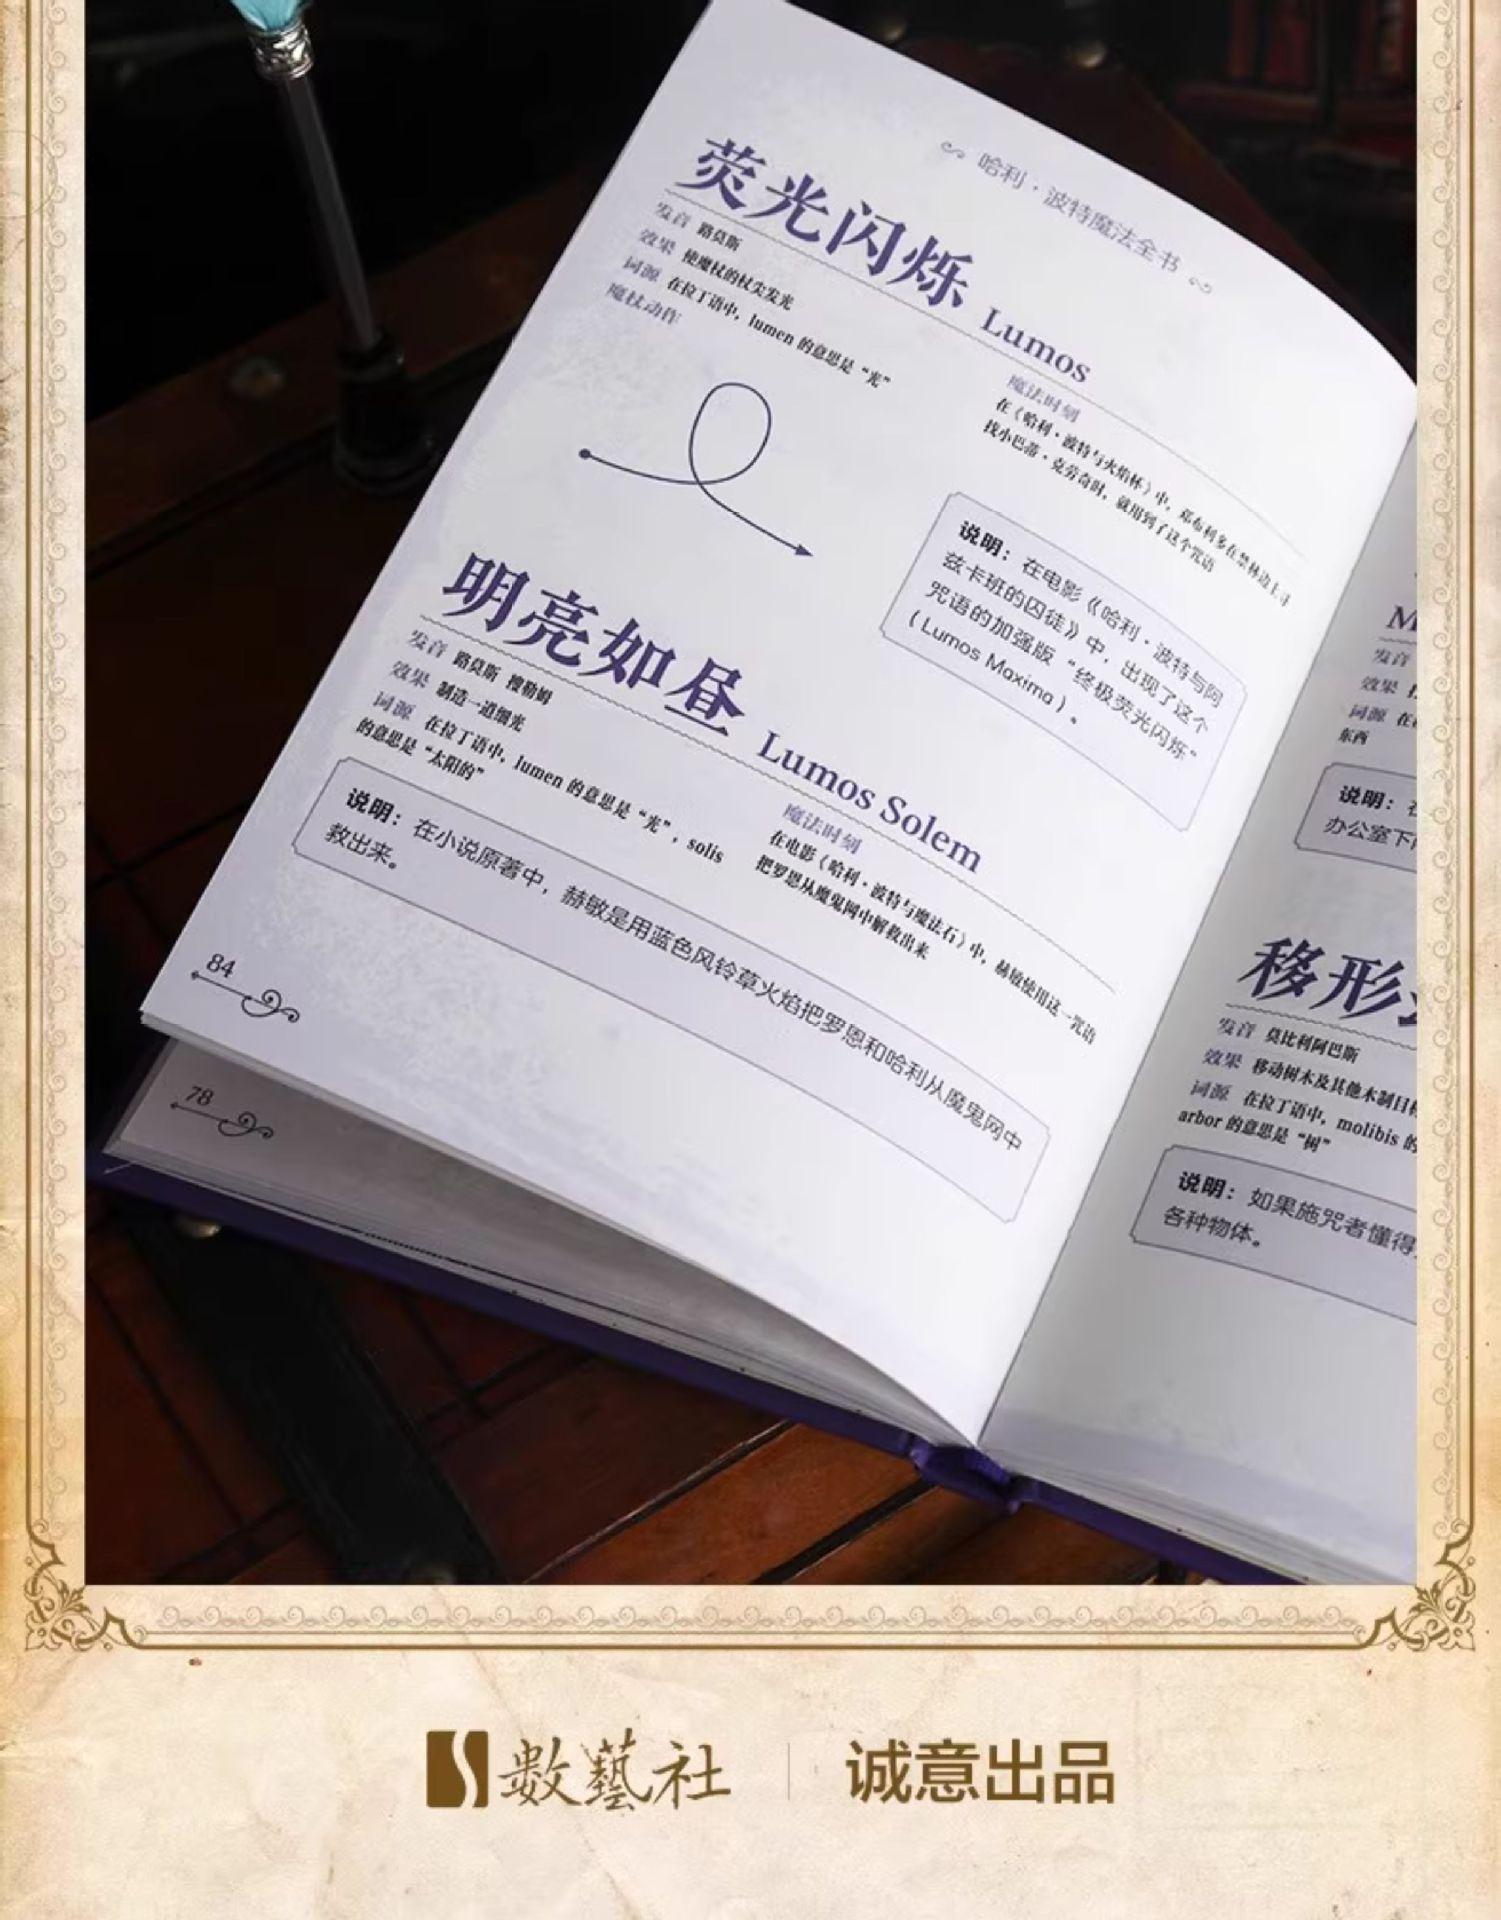 哈利·波特魔法全书
荧光闪烁 Lumos
发音 路莫斯
效果 使魔杖的杖尖发光
词源 在拉丁语中，lumen 的意思是“光”
魔杖动作
魔法时刻
在《哈利·波特与火焰杯》中，邓布利多在禁林边上寻
找小巴蒂·克劳奇时，就用到了这个咒语
说明：在电影《哈利·波特与阿
兹卡班的囚徒》中，出现了这个
咒语的加强版“终极荧光闪烁”
（Lumos Maxima）。
明亮如昼 Lumos Solem
发音 路莫斯 搜勒姆
效果 制造一道细光
词源 在拉丁语中，lumen 的意思是“光”，solis
的意思是“太阳的”
魔法时刻
在电影《哈利·波特与魔法石》中，赫敏使用这一咒语
把罗恩从魔鬼网中解救出来
说明：在小说原著中，赫敏是用蓝色风铃草火焰把罗恩和哈利从魔鬼网中
救出来。
84
78
M
发音
效果
词源 在
东西
说明：
办公室下
移形
发音 莫比利阿巴斯
效果 移动树木及其他木制目
词源 在拉丁语中，molibis 的
arbor 的意思是“树”
说明：如果施咒者懂得
各种物体。
數藝社
诚意出品